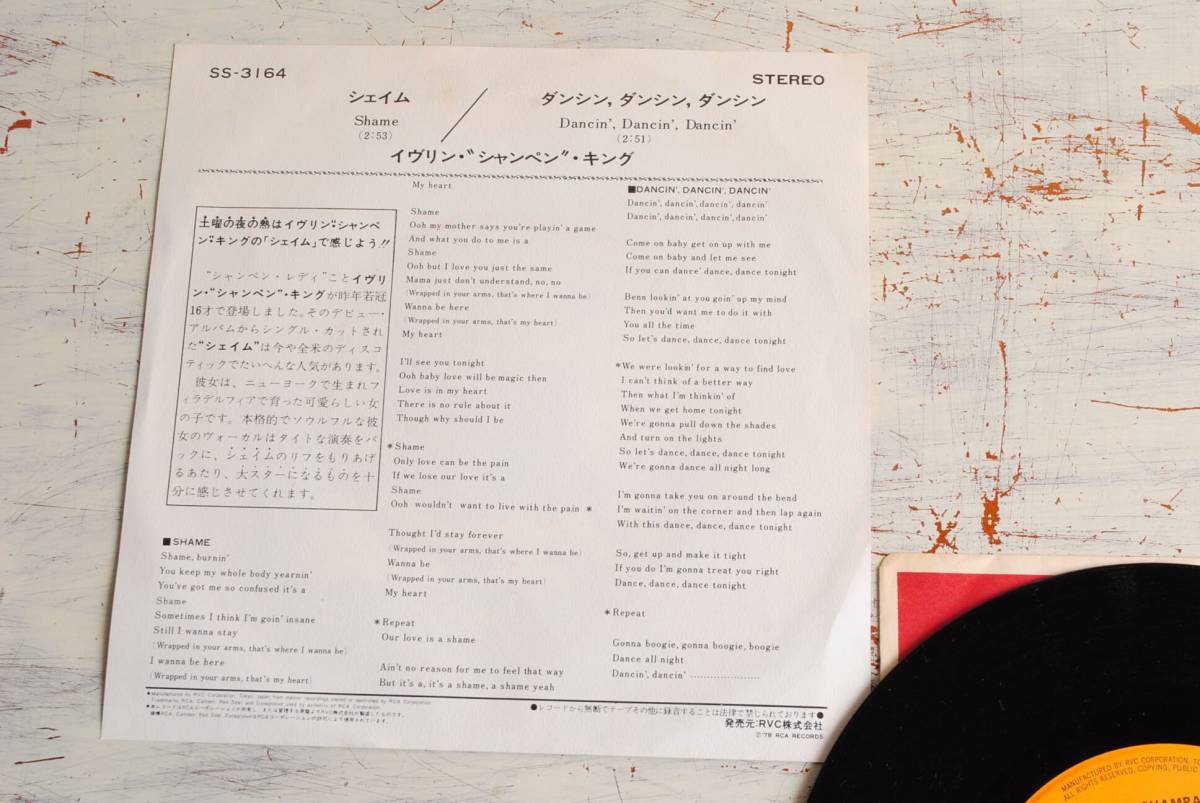 SS-3164
STEREO
シェイム
Shame
(2:53)
ダンシン, ダンシン, ダンシン
Dancin', Dancin', Dancin'
(2:51)
イヴリン・"シャンペン"・キング
土曜の夜の熱はイヴリン"シャンペ
ン"キングの「シェイム」で感じよう!!
"シャンペン・レディ"ことイヴリ
ン・"シャンペン"・キングが昨年若冠
16才で登場しました。そのデビュー・
アルバムからシングル・カットされ
た"シェイム"は今や全米のディスコ
ティックでたいへんな人気があります。
彼女は、ニューヨークで生まれフ
ィラデルフィアで育った可愛らしい女
の子です。本格的でソウルフルな彼
女のヴォーカルはタイトな演奏をバ
ックに、シェイムのリフをもりあげ
るあたり、大スターになるものを十
分に感じさせてくれます。
■SHAME
Shame, burnin'
You keep my whole body yearnin'
You've got me so confused it's a
Shame
Sometimes I think I'm goin' insane
Still I wanna stay
(Wrapped in your arms, that's where I wanna be)
I wanna be here
(Wrapped in your arms, that's my heart)
My heart
Shame
Ooh my mother says you're playin' a game
And what you do to me is a
Shame
Ooh but I love you just the same
Mama just don't understand, no, no
(Wrapped in your arms, that's where I wanna be)
Wanna be here
(Wrapped in your arms, that's my heart)
My heart
I'll see you tonight
Ooh baby love will be magic then
Love is in my heart
There is no rule about it
Though why should I be
*Shame
Only love can be the pain
If we lose our love it's a
Shame
Ooh wouldn't want to live with the pain *
Thought I'd stay forever
(Wrapped in your arms, that's where I wanna be)
Wanna be
(Wrapped in your arms, that's my heart)
My heart
*Repeat
Our love is a shame
Ain't no reason for me to feel that way
But it's a, it's a shame, a shame yeah
■DANCIN', DANCIN', DANCIN'
Dancin', dancin', dancin', dancin'
Dancin', dancin', dancin', dancin'
Come on baby get on up with me
Come on baby and let me see
If you can dance' dance, dance tonight
Benn lookin' at you goin' up my mind
Then you'd want me to do it with
You all the time
So let's dance, dance, dance tonight
*We were lookin' for a way to find love
I can't think of a better way
Then what I'm thinkin' of
When we get home tonight
We're gonna pull down the shades
And turn on the lights
So let's dance, dance, dance tonight
We're gonna dance all night long
I'm gonna take you on around the bend
I'm waitin' on the corner and then lap again
With this dance, dance, dance tonight
So, get up and make it tight
If you do I'm gonna treat you right
Dance, dance, dance tonight
*Repeat
Gonna boogie, gonna boogie, boogie
Dance all night
Dancin', dancin' ....................
●Manufactured by RVC Corporation, Tokyo, Japan from master recordings owned or controlled by RCA Corporation.
●レコードから無断でテープその他に録音することは法律で禁じられております●
発売元:RVC株式会社
Ⓟ'78 RCA RECORDS
MANUFACTURED BY RVC CORPORATION, TO
ALL RIGHTS RESERVED, COPYING, PUBLIC